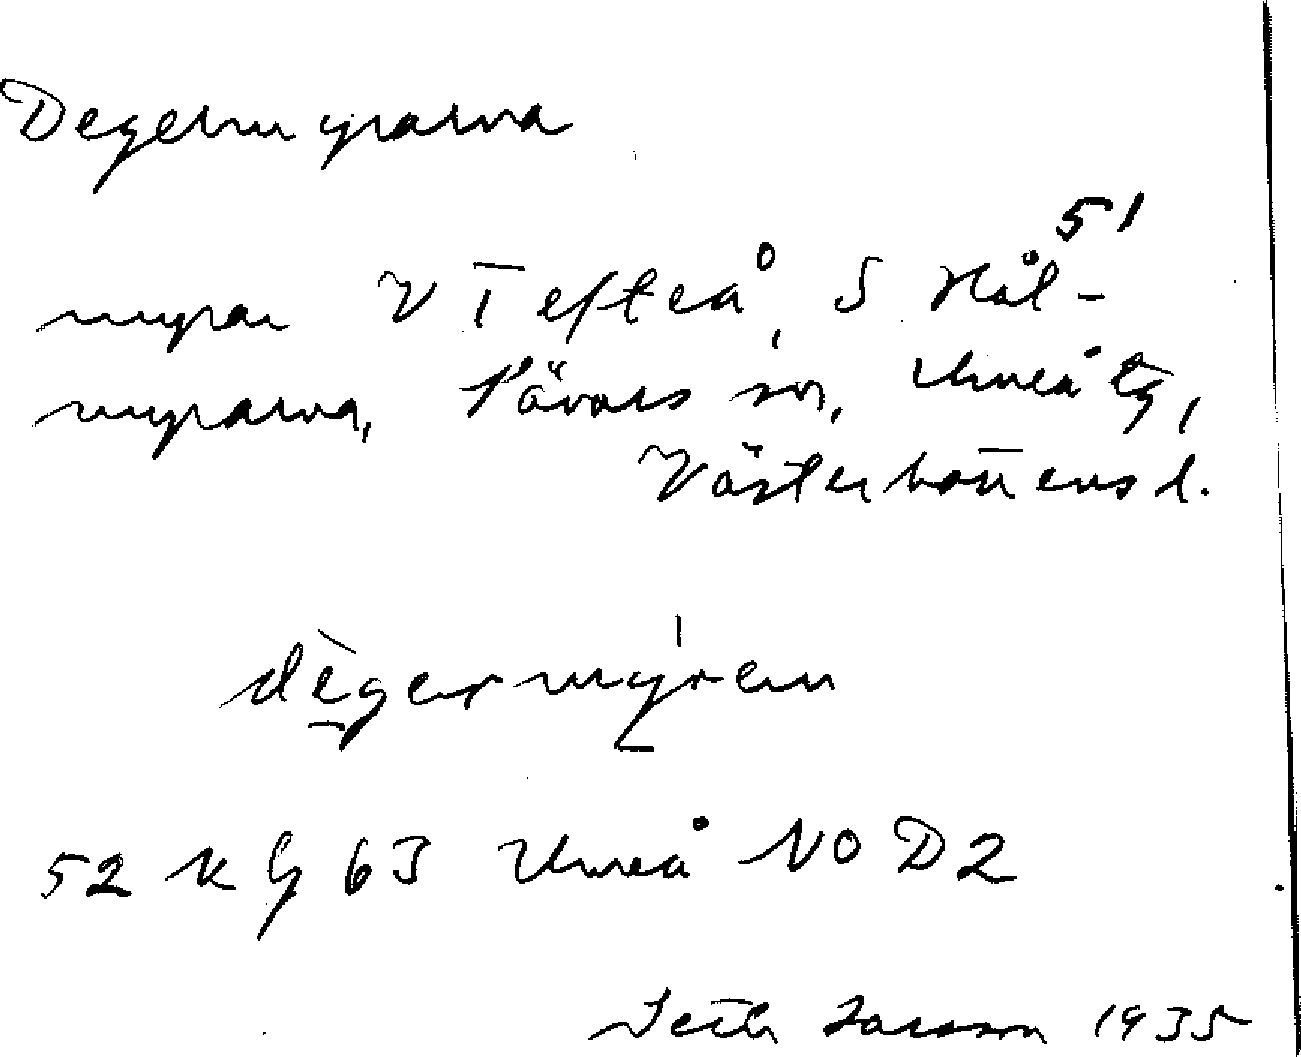 Degermyrarna
51
myrar V Tefteå, S Hål-
myrarna, Sävars sn, Umeå tg,
Västerbottens l.
dègermýren
52 K g 63 Umeå NO D2
Seth Larsson 1935